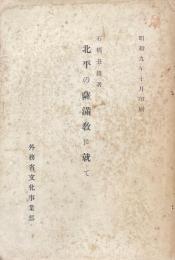 昭和九年十月印刷
石橋丑雄著
北平の薩滿教に就て
外務省文化事業部